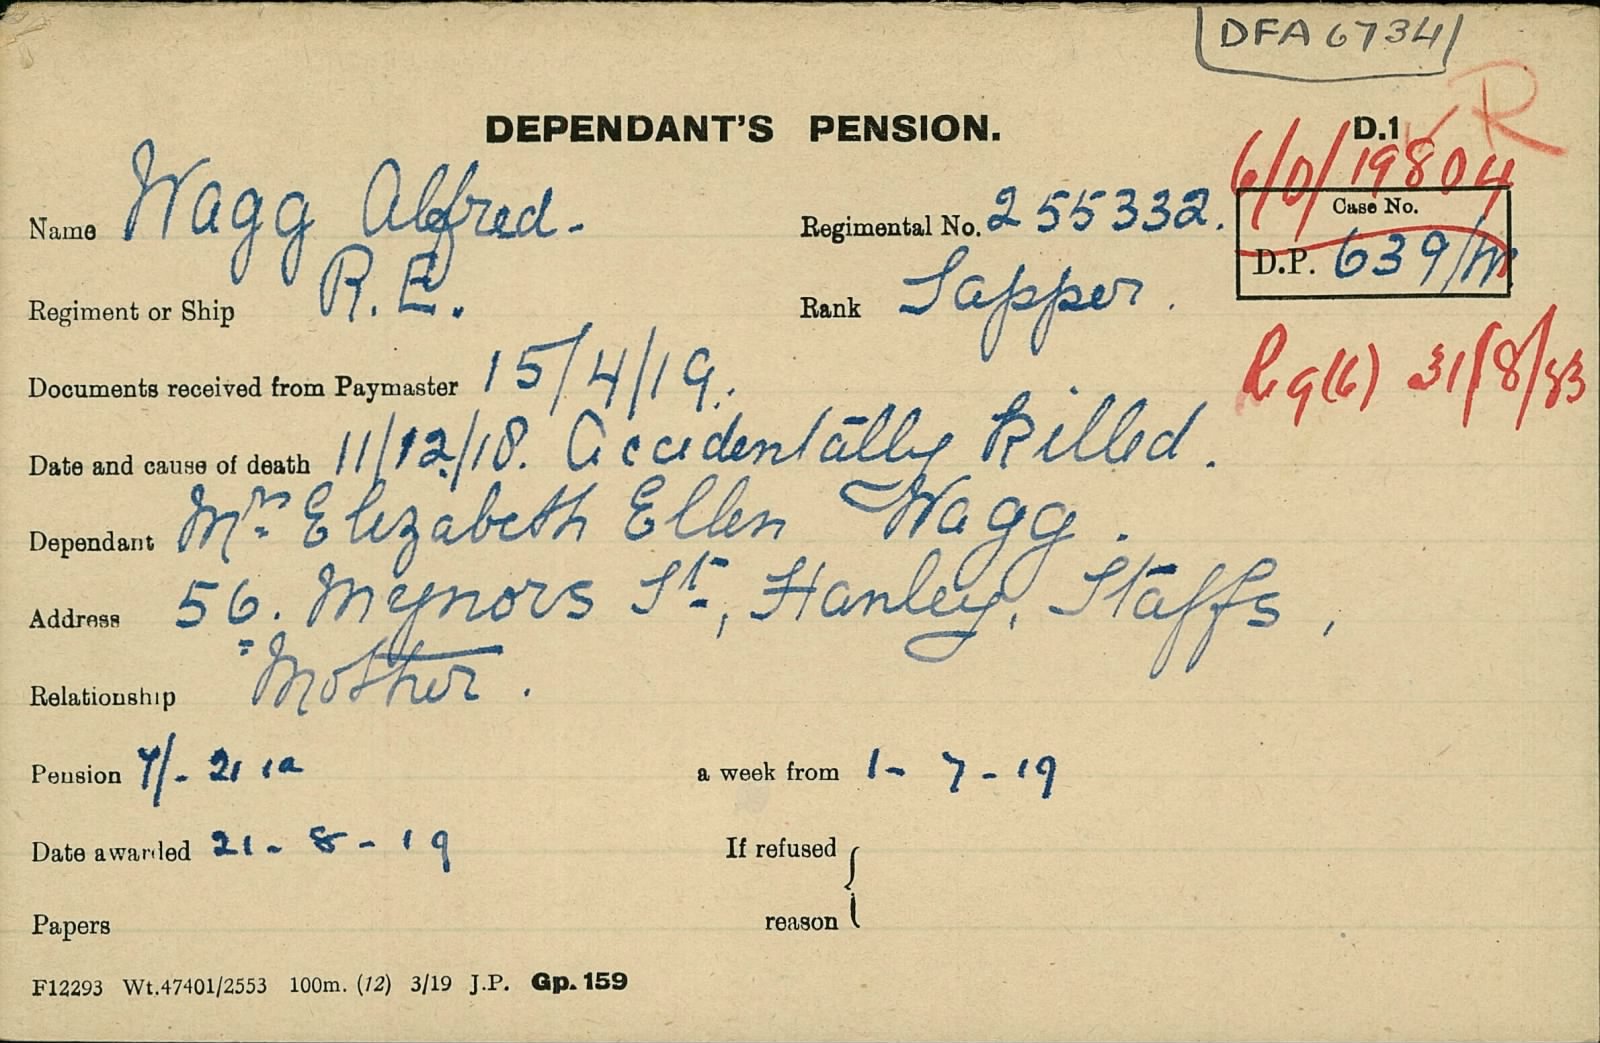 DFA 6734/
DEPENDANT'S PENSION.
D.1
R
6/D/19804
Name Wagg Alfred.
Regimental No. 255332.
Case No.
D.P. 639/M
Regiment or Ship R.E.
Rank Sapper.
Documents received from Paymaster 15/4/19.
Date and cause of death 11/12/18. Accidentally Killed.
Dependant Mrs Elizabeth Ellen Wagg.
Address 56. Meynors St, Hanley, Staffs,
Relationship Mother.
Pension 7/-
a week from 1-7-19
Date awarded 21-8-19
If refused
reason
Papers
F12293 Wt.47401/2553 100m. (12) 3/19 J.P. Gp. 159